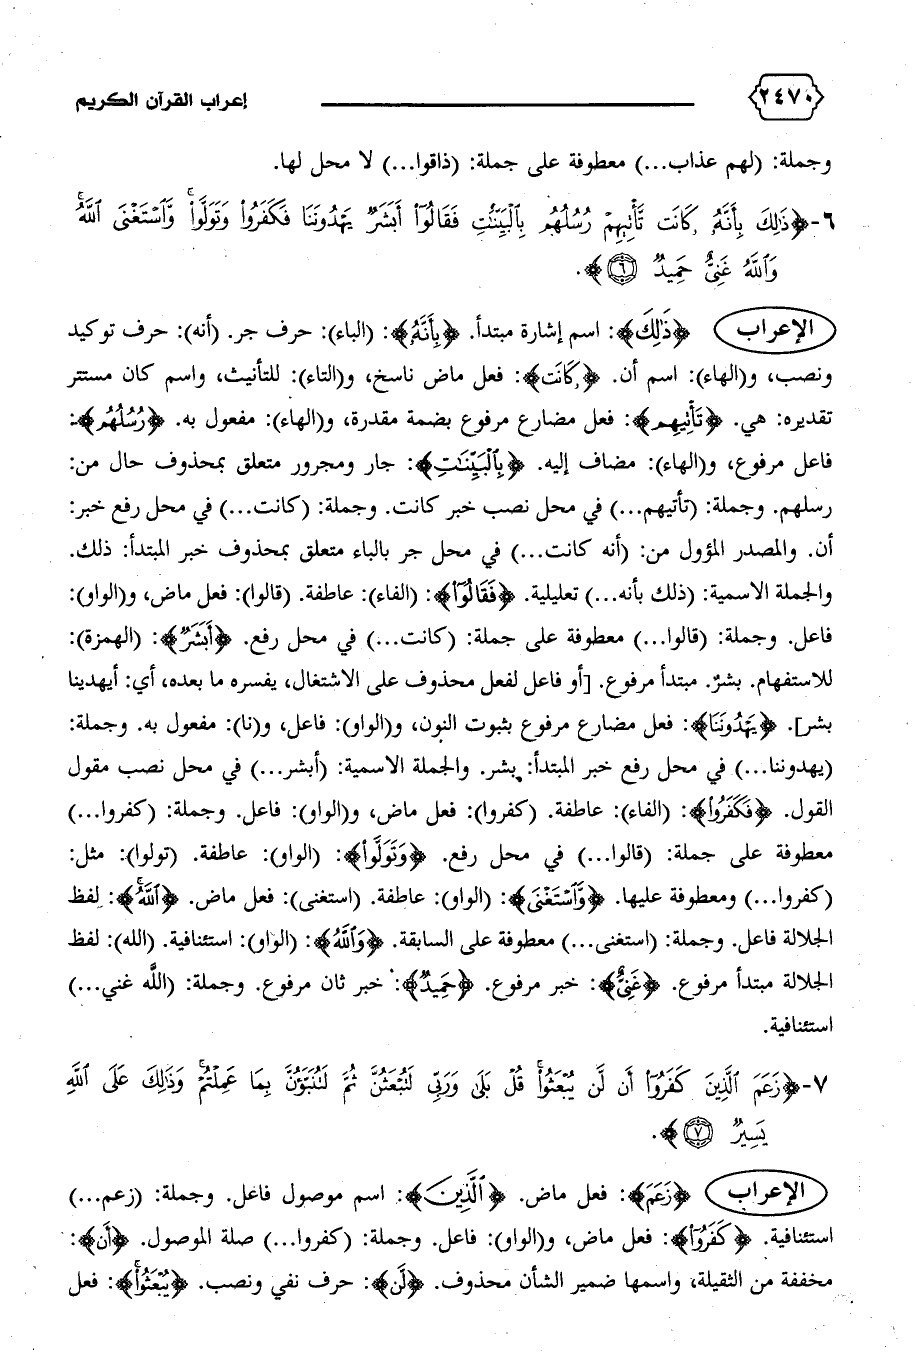 ٢٤٧٠ إعراب القرآن الكريم
وجملة: (لهم عذاب...) معطوفة على جملة: (ذاقوا...) لا محل لها.
٦- ﴿ذَٰلِكَ بِأَنَّهُۥ كَانَت تَّأۡتِيهِمۡ رُسُلُهُم بِٱلۡبَيِّنَٰتِ فَقَالُوٓاْ أَبَشَرٞ يَهۡدُونَنَا فَكَفَرُواْ وَتَوَلَّواْۚ وَّٱسۡتَغۡنَى ٱللَّهُۚ
وَٱللَّهُ غَنِيٌّ حَمِيدٞ ٦﴾.
الإعراب ﴿ذَٰلِكَ﴾: اسم إشارة مبتدأ. ﴿بِأَنَّهُۥ﴾: (الباء): حرف جر. (أنه): حرف توكيد
ونصب، و(الهاء): اسم أن. ﴿كَانَت﴾: فعل ماض ناسخ، و(التاء): للتأنيث، واسم كان مستتر
تقديره: هي. ﴿تَأۡتِيهِمۡ﴾: فعل مضارع مرفوع بضمة مقدرة، و(الهاء): مفعول به. ﴿رُسُلُهُم﴾:
فاعل مرفوع، و(الهاء): مضاف إليه. ﴿بِٱلۡبَيِّنَٰتِ﴾: جار ومجرور متعلق بمحذوف حال من:
رسلهم. وجملة: (تأتيهم...) في محل نصب خبر كانت. وجملة: (كانت...) في محل رفع خبر:
أن. والمصدر المؤول من: (أنه كانت...) في محل جر بالباء متعلق بمحذوف خبر المبتدأ: ذلك.
والجملة الاسمية: (ذلك بأنه...) تعليلية. ﴿فَقَالُوٓاْ﴾: (الفاء): عاطفة. (قالوا): فعل ماض، و(الواو):
فاعل. وجملة: (قالوا...) معطوفة على جملة: (كانت...) في محل رفع. ﴿أَبَشَرٞ﴾: (الهمزة):
للاستفهام. بشرٌ. مبتدأ مرفوع. [أو فاعل لفعل محذوف على الاشتغال، يفسره ما بعده، أي: أيهدينا
بشر]. ﴿يَهۡدُونَنَا﴾: فعل مضارع مرفوع بثبوت النون، و(الواو): فاعل، و(نا): مفعول به. وجملة:
(يهدوننا...) في محل رفع خبر المبتدأ: بشر. والجملة الاسمية: (أبشر...) في محل نصب مقول
القول. ﴿فَكَفَرُواْ﴾: (الفاء): عاطفة. (كفروا): فعل ماض، و(الواو): فاعل. وجملة: (كفروا...)
معطوفة على جملة: (قالوا...) في محل رفع. ﴿وَتَوَلَّواْ﴾: (الواو): عاطفة. (تولوا): مثل:
(كفروا...) ومعطوفة عليها. ﴿وَّٱسۡتَغۡنَى﴾: (الواو): عاطفة. (استغنى): فعل ماض. ﴿ٱللَّهُۚ﴾: لفظ
الجلالة فاعل. وجملة: (استغنى...) معطوفة على السابقة. ﴿وَٱللَّهُ﴾: (الواو): استئنافية. (الله): لفظ
الجلالة مبتدأ مرفوع. ﴿غَنِيٌّ﴾: خبر مرفوع. ﴿حَمِيدٞ﴾: خبر ثان مرفوع. وجملة: (اللَّه غني...)
استئنافية.
٧- ﴿زَعَمَ ٱلَّذِينَ كَفَرُوٓاْ أَن لَّن يُبۡعَثُواْۚ قُلۡ بَلَىٰ وَرَبِّي لَتُبۡعَثُنَّ ثُمَّ لَتُنَبَّؤُنَّ بِمَا عَمِلۡتُمۡۚ وَذَٰلِكَ عَلَى ٱللَّهِ
يَسِيرٞ ٧﴾.
الإعراب ﴿زَعَمَ﴾: فعل ماض. ﴿ٱلَّذِينَ﴾: اسم موصول فاعل. وجملة: (زعم...)
استئنافية. ﴿كَفَرُوٓاْ﴾: فعل ماض، و(الواو): فاعل. وجملة: (كفروا...) صلة الموصول. ﴿أَن﴾:
مخففة من الثقيلة، واسمها ضمير الشأن محذوف. ﴿لَّن﴾: حرف نفي ونصب. ﴿يُبۡعَثُواْۚ﴾: فعل